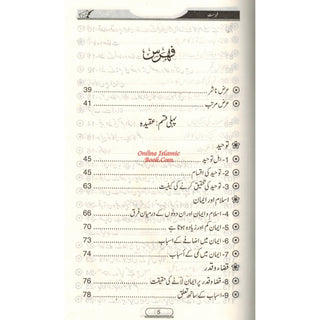 فہرست
فہرس
عرض ناشر 39
عرض مرتب 41
پہلی قسم: عقیدہ
توحید
Online Islamic
Book.Com
1- اہل توحید 45
2- توحید کی اقسام 45
3- توحید کی تحقیق کرنے کی کیفیت 63
اسلام اور ایمان
4- اسلام و ایمان اور ان دونوں کے درمیان فرق 66
5- ایمان کم اور زیادہ ہوتا ہے 70
6- ایمان میں اضافے کے اسباب 73
7- ایمان میں کمی کے اسباب 74
قضاء و قدر
8- قضاء و قدر پر ایمان لانے کی حقیقت 76
9- اسباب کے ساتھ تعلق 78
5